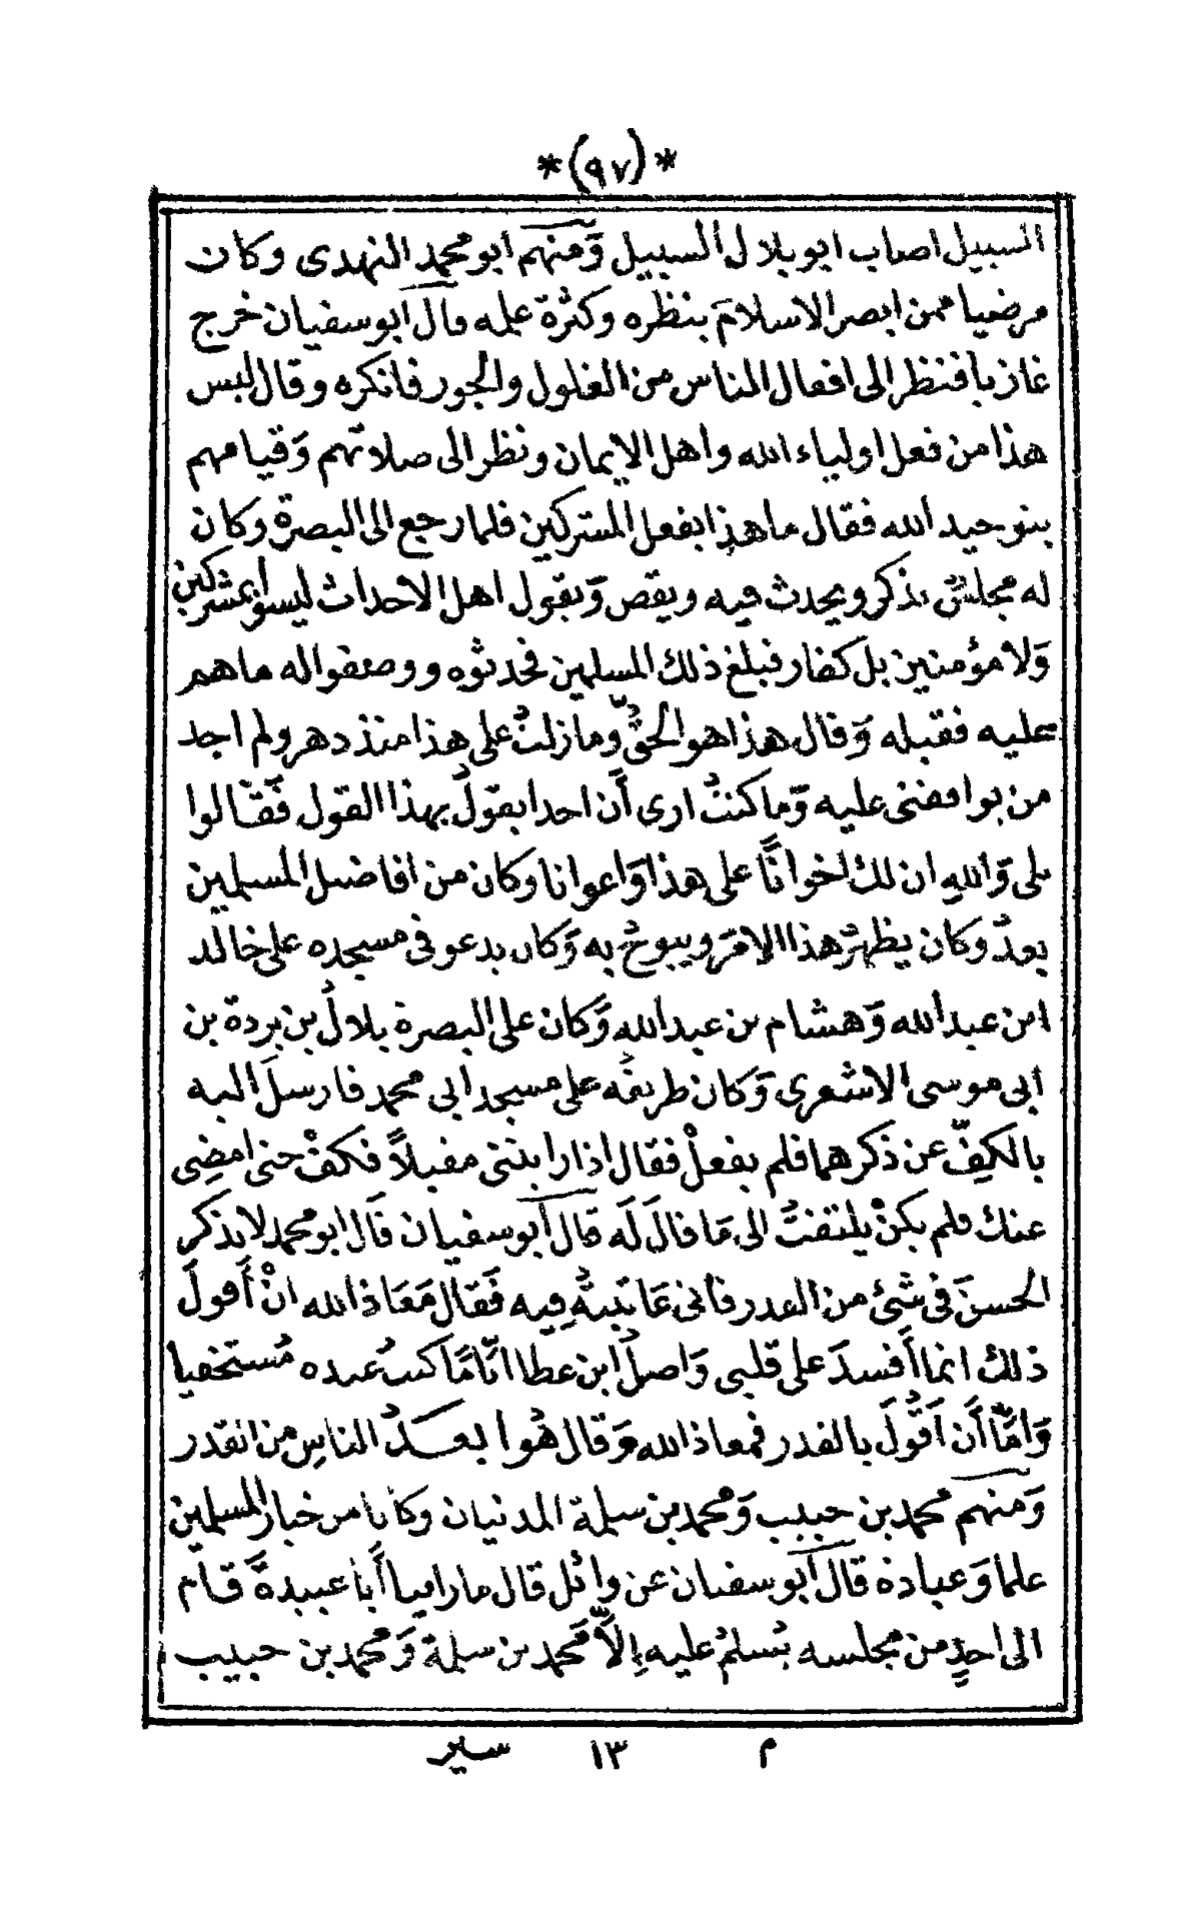 *(٩٧)*
السبيل اصاب ابو بلال السبيل وَمنهم ابو محمد النهدى وكان
مرضيا ممن ابصر الاسلامَ بنظره وكثرة علمه قال ابو سفيان خرج
غازيا فنظر الى افعال الناس من الغلول والجور فانكره وقال ليس
هذا من فعل اولياء الله واهل الايمان ونظر الى صلاتهم وَقيامهم
بتوحيد الله فقال ما هذا بفعل المشركين فلما رجع الى البصرة وكان
له مجلس يذكر ويحدث فيه ويقص وَيقول اهل الاحداث ليسوا بمشركين
وَلا مؤمنين بل كفار فبلغ ذلك المسلمين فحدثوه ووصفوا له ما هم
عليه فقبله وَقال هذا هو الحقُّ وّما زلتُ على هذا منذ دهر ولم اجد
من يوافقنى عليه وَّما كنتُ ارى أَن احدا يقولُ بهذا القول فَقَالوا
بلى وَّاللهِ ان لك اخوانًا على هذا وَاعوانا وكان من افاضل المسلمين
بعدُ وكان يظهرُ هذا الامرَ ويبوحُ به وَكان يدعو فى مسجده على خالد
ابن عبد الله وَهشام بن عبد الله وَكان على البصرة بلالُ بن بردة بن
أبى موسى الاشعرى وَكان طريقُه على مسجد ابى محمد فارسلَ اليه
بالكفِّ عن ذكرهما فلم يفعلْ فقال اذا رايتنى مقبلاً فكفْ حتى امضِى
عنك فلم يكنْ يلتفتُ الى مَا قالَ لَه قال أبو سفيان قَال ابو محمد لا يذكر
الحسنَ فى شئ من القدر فانى عَاتبتُه فِيه فَقال مَعَاذ الله انْ أَقولَ
ذلك انما أَفسدَ على قلبى وَاصلُ ابن عطا انَّامًا كنتُ عبده مُستخفيا
وَامَّا أَن اَقُولَ بالقدر فمعاذ الله وَقال هُوا بعدُ الناسِ من القدر
وَمنهم محمد بن حبيب وَمحمد بن سلمة المدنيان وكانا من خيار المسلمين
علما وَعبادة قال أبو سفيان عن وائل قال ما راينا أَبا عبيدةَ قام
الى احدٍ من مجلسه يُسلمُ عليه إلاَّ محمد بن سلمة وَمحمد بن حبيب
م ١٣ سير